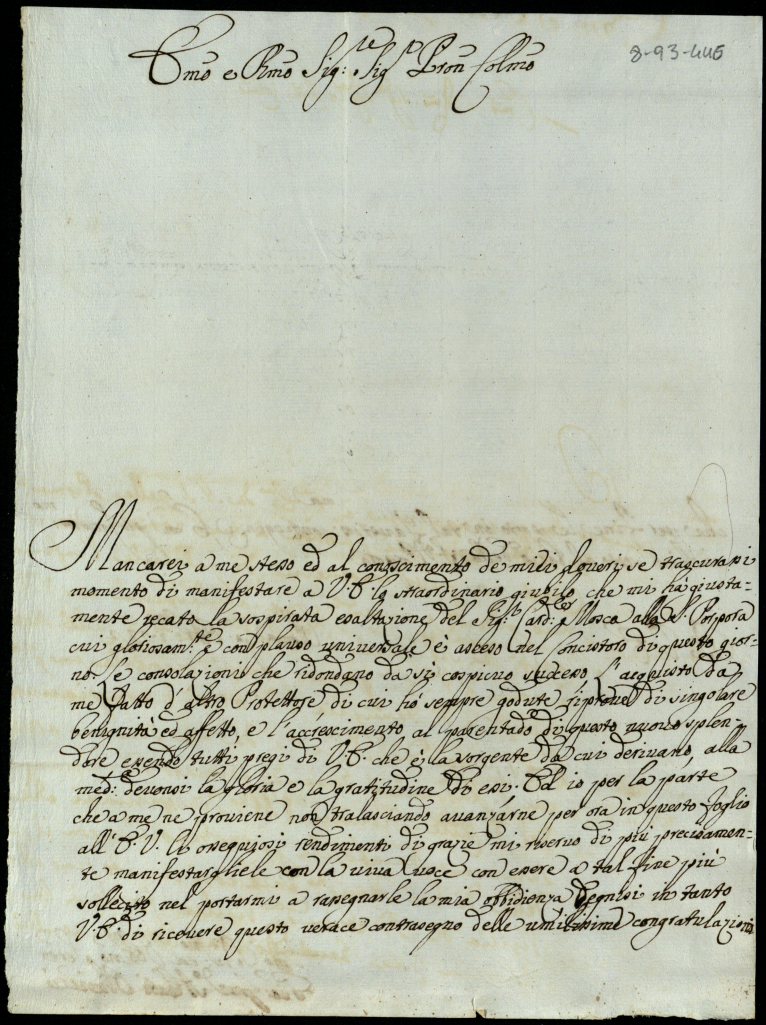 Emo e Rmo Sig:re Sigr Pron Colmo
8-93-446
Mancarei a me stesso ed al conoscimento de miei doveri se trascurassi
momento di manifestare a V. E. lo straordinario giubilo, che mi hà giusta-
mente recato la sospirata esaltazione del Sig:r Card: Mosca alla S. Porpora
cui gloriosam:te e con plauso universale è asceso nel Concistoro di questo gior-
no. Le consolazioni che ridondano da sì cospicuo successo l'acquisto da
me fatto d'altro Protettore di cui hò sempre godute riprove di singolare
benignità ed affetto, e l'accrescimento al parentado di questo nuovo splen-
dore essendo tutti pregi di V. E. che è la sorgente da cui derivano, alla
med: devonsi la gloria e la gratitudine di essi. Ed io per la parte
che a me ne proviene non tralasciando avanzarne per ora in questo foglio
all' E. V. li ossequiosi rendimenti di grazie mi riservo di più precisamen-
te manifestargliele con la viva voce con essere a tal fine più
sollecito nel portarmi a rassegnarle la mia obbidienza degnisi in tanto
V. E. di ricevere questo verace contrasegno delle umilissime congratulazioni